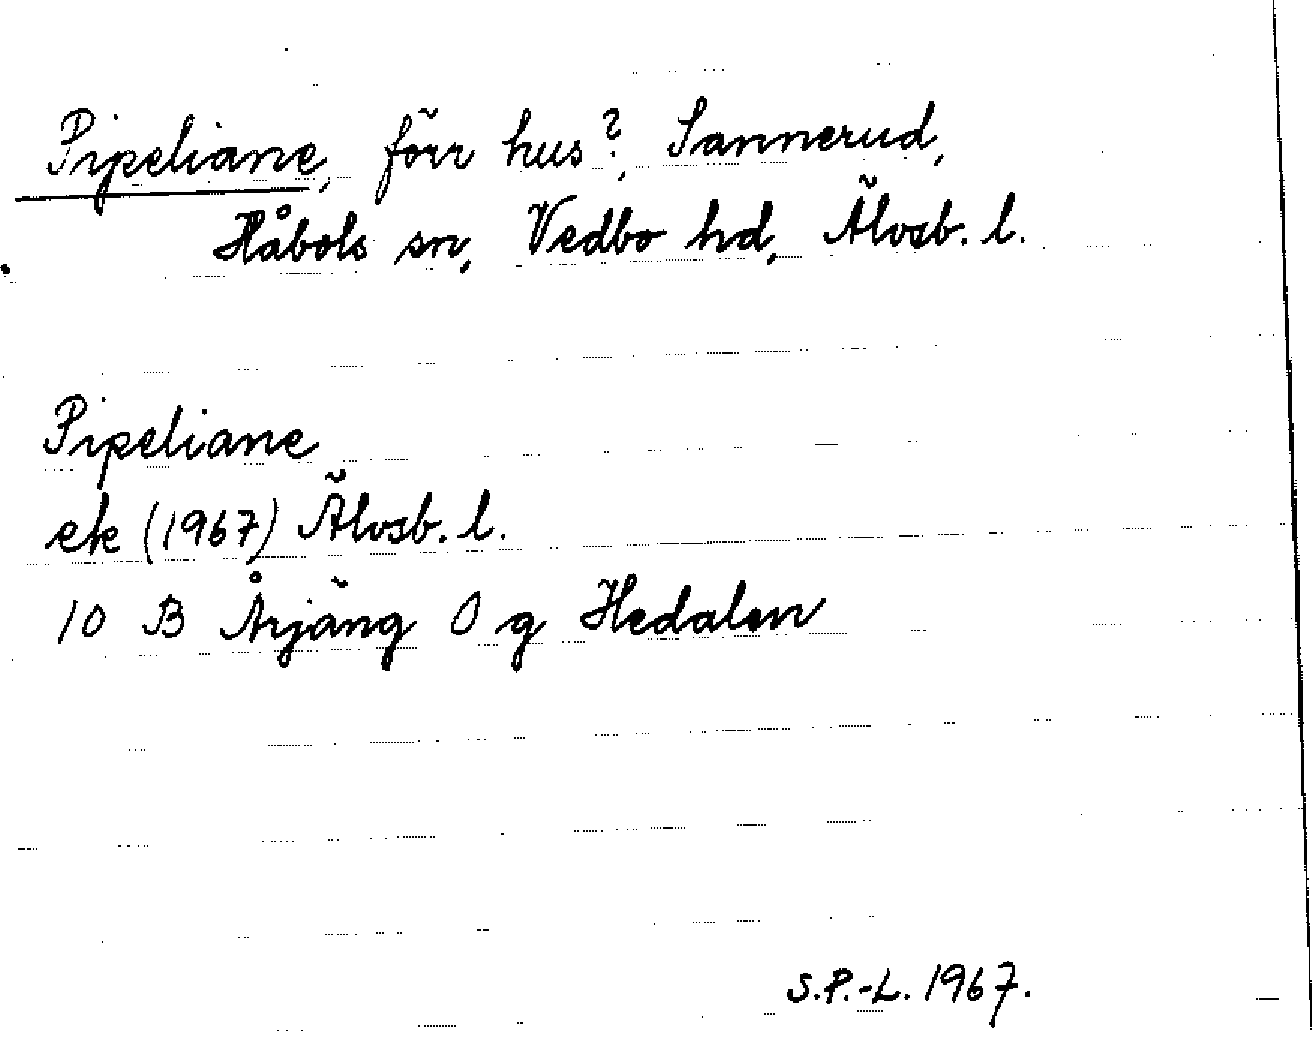 Pipeliane, förr hus?, Sannerud,
Håbols sn, Vedbo hd, Älvsb. l.
Pipeliane
ek (1967) Älvsb. l.
10 B Årjäng O g Hedalen
S.P.-L. 1967.